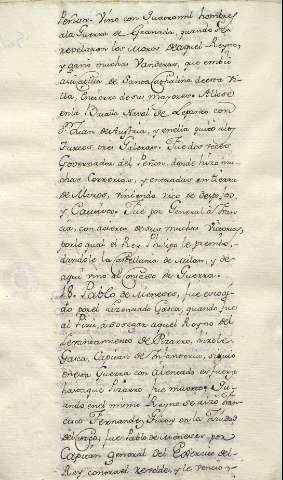 Peñon. Vino con quatro mil hombres
ala Guerra de Granada, quando se
revelaron los Moros de aquel Reyno,
y ganó muchas Vanderas, que embió
a la de Santa Cathalina de esta Vi-
lla, Entierro de sus mayores. Allose
en la Batalla Naval de Lepanto con
Dn. Juan de Austria, y en ella quitó alos
Turcos tres Galeras. Fue dos veces
Governador del Peñon, donde hizo mu-
chas Correrias, y entradas en tierra
de Moros, viniendo rico de despojos,
y Cautivos. Fue por General a
con de sus muchas Victorias,
por lo qual el Rey Phelipe le premió,
dandole la Castellania de Milan, y de
aqui vino al Consejo de Guerra.
18. Pablo de Meneses, fue escogi-
do por el Licenciado Gasca, quando fue
al Pirú, a sosegar aquel Reyno del
levantamiento de Pizarro, hizole
Gasca, Capitan de Infanteria, siguio
en esta Guerra con alentado esfuerzo
hasta que Pizarro fue muerto.
ando en el mismo Reyno se alzó Fran-
cisco Fernandez Giron en la Ciudad
del Cuzco, fue Pablo de Meneses por
Capitan general del Exercito del
Rey contra el revelde, y le venció y